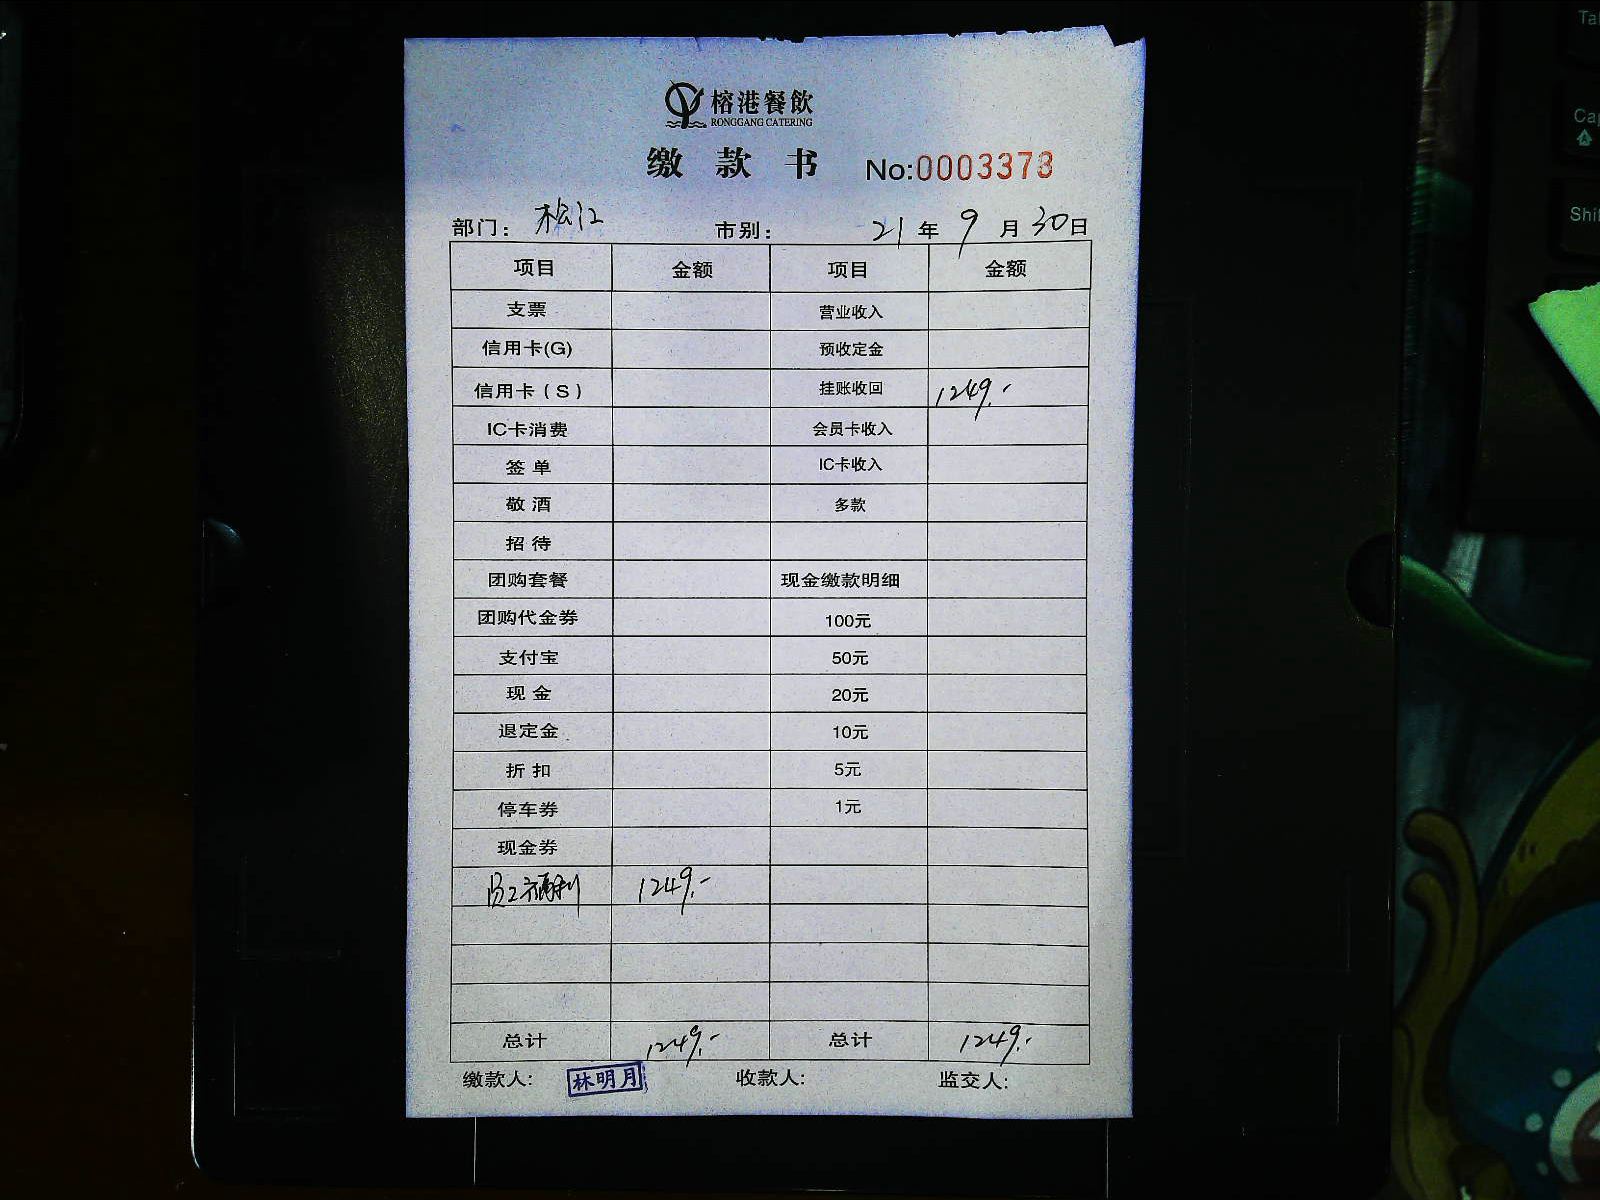 榕港餐飲
RONGGANG CATERING
缴款书 No:0003373
部门: 松江 市别: 21年9月30日
项目 金额 项目 金额
支票 营业收入
信用卡(G) 预收定金
信用卡(S) 挂账收回 1249.-
IC卡消费 会员卡收入
签单 IC卡收入
敬酒 多款
招待
团购套餐 现金缴款明细
团购代金券 100元
支付宝 50元
现金 20元
退定金 10元
折扣 5元
停车券 1元
现金券
员工福利 1249.-
总计 1249.- 总计 1249.-
缴款人: 林明月 收款人: 监交人:
Shi